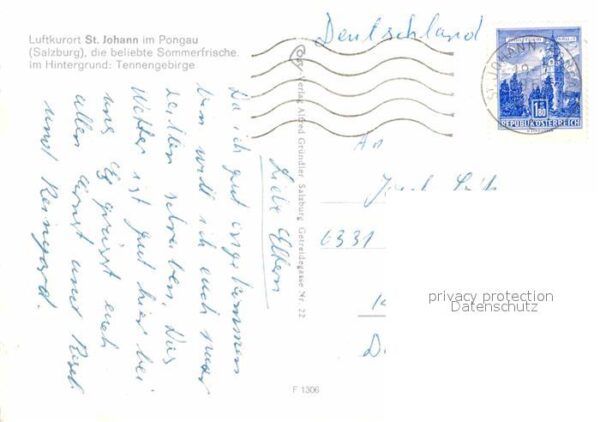 Luftkurort St. Johann im Pongau
(Salzburg), die beliebte Sommerfrische.
Im Hintergrund: Tennengebirge
Deutschland
ST. JOHANN
1.80
REPUBLIK ÖSTERREICH
Verlag Alfred Gründler Salzburg Getreidegasse Nr. 22
Liebe Eltern
Da ich gut angekommen
bin will ich euch paar
Zeilen schreiben. Das
Wetter ist gut hier bei
uns. Es grüsst euch
allen Ernst und Resel
und Reingard.
An
Josef
6331
privacy protection
Datenschutz
F 1306